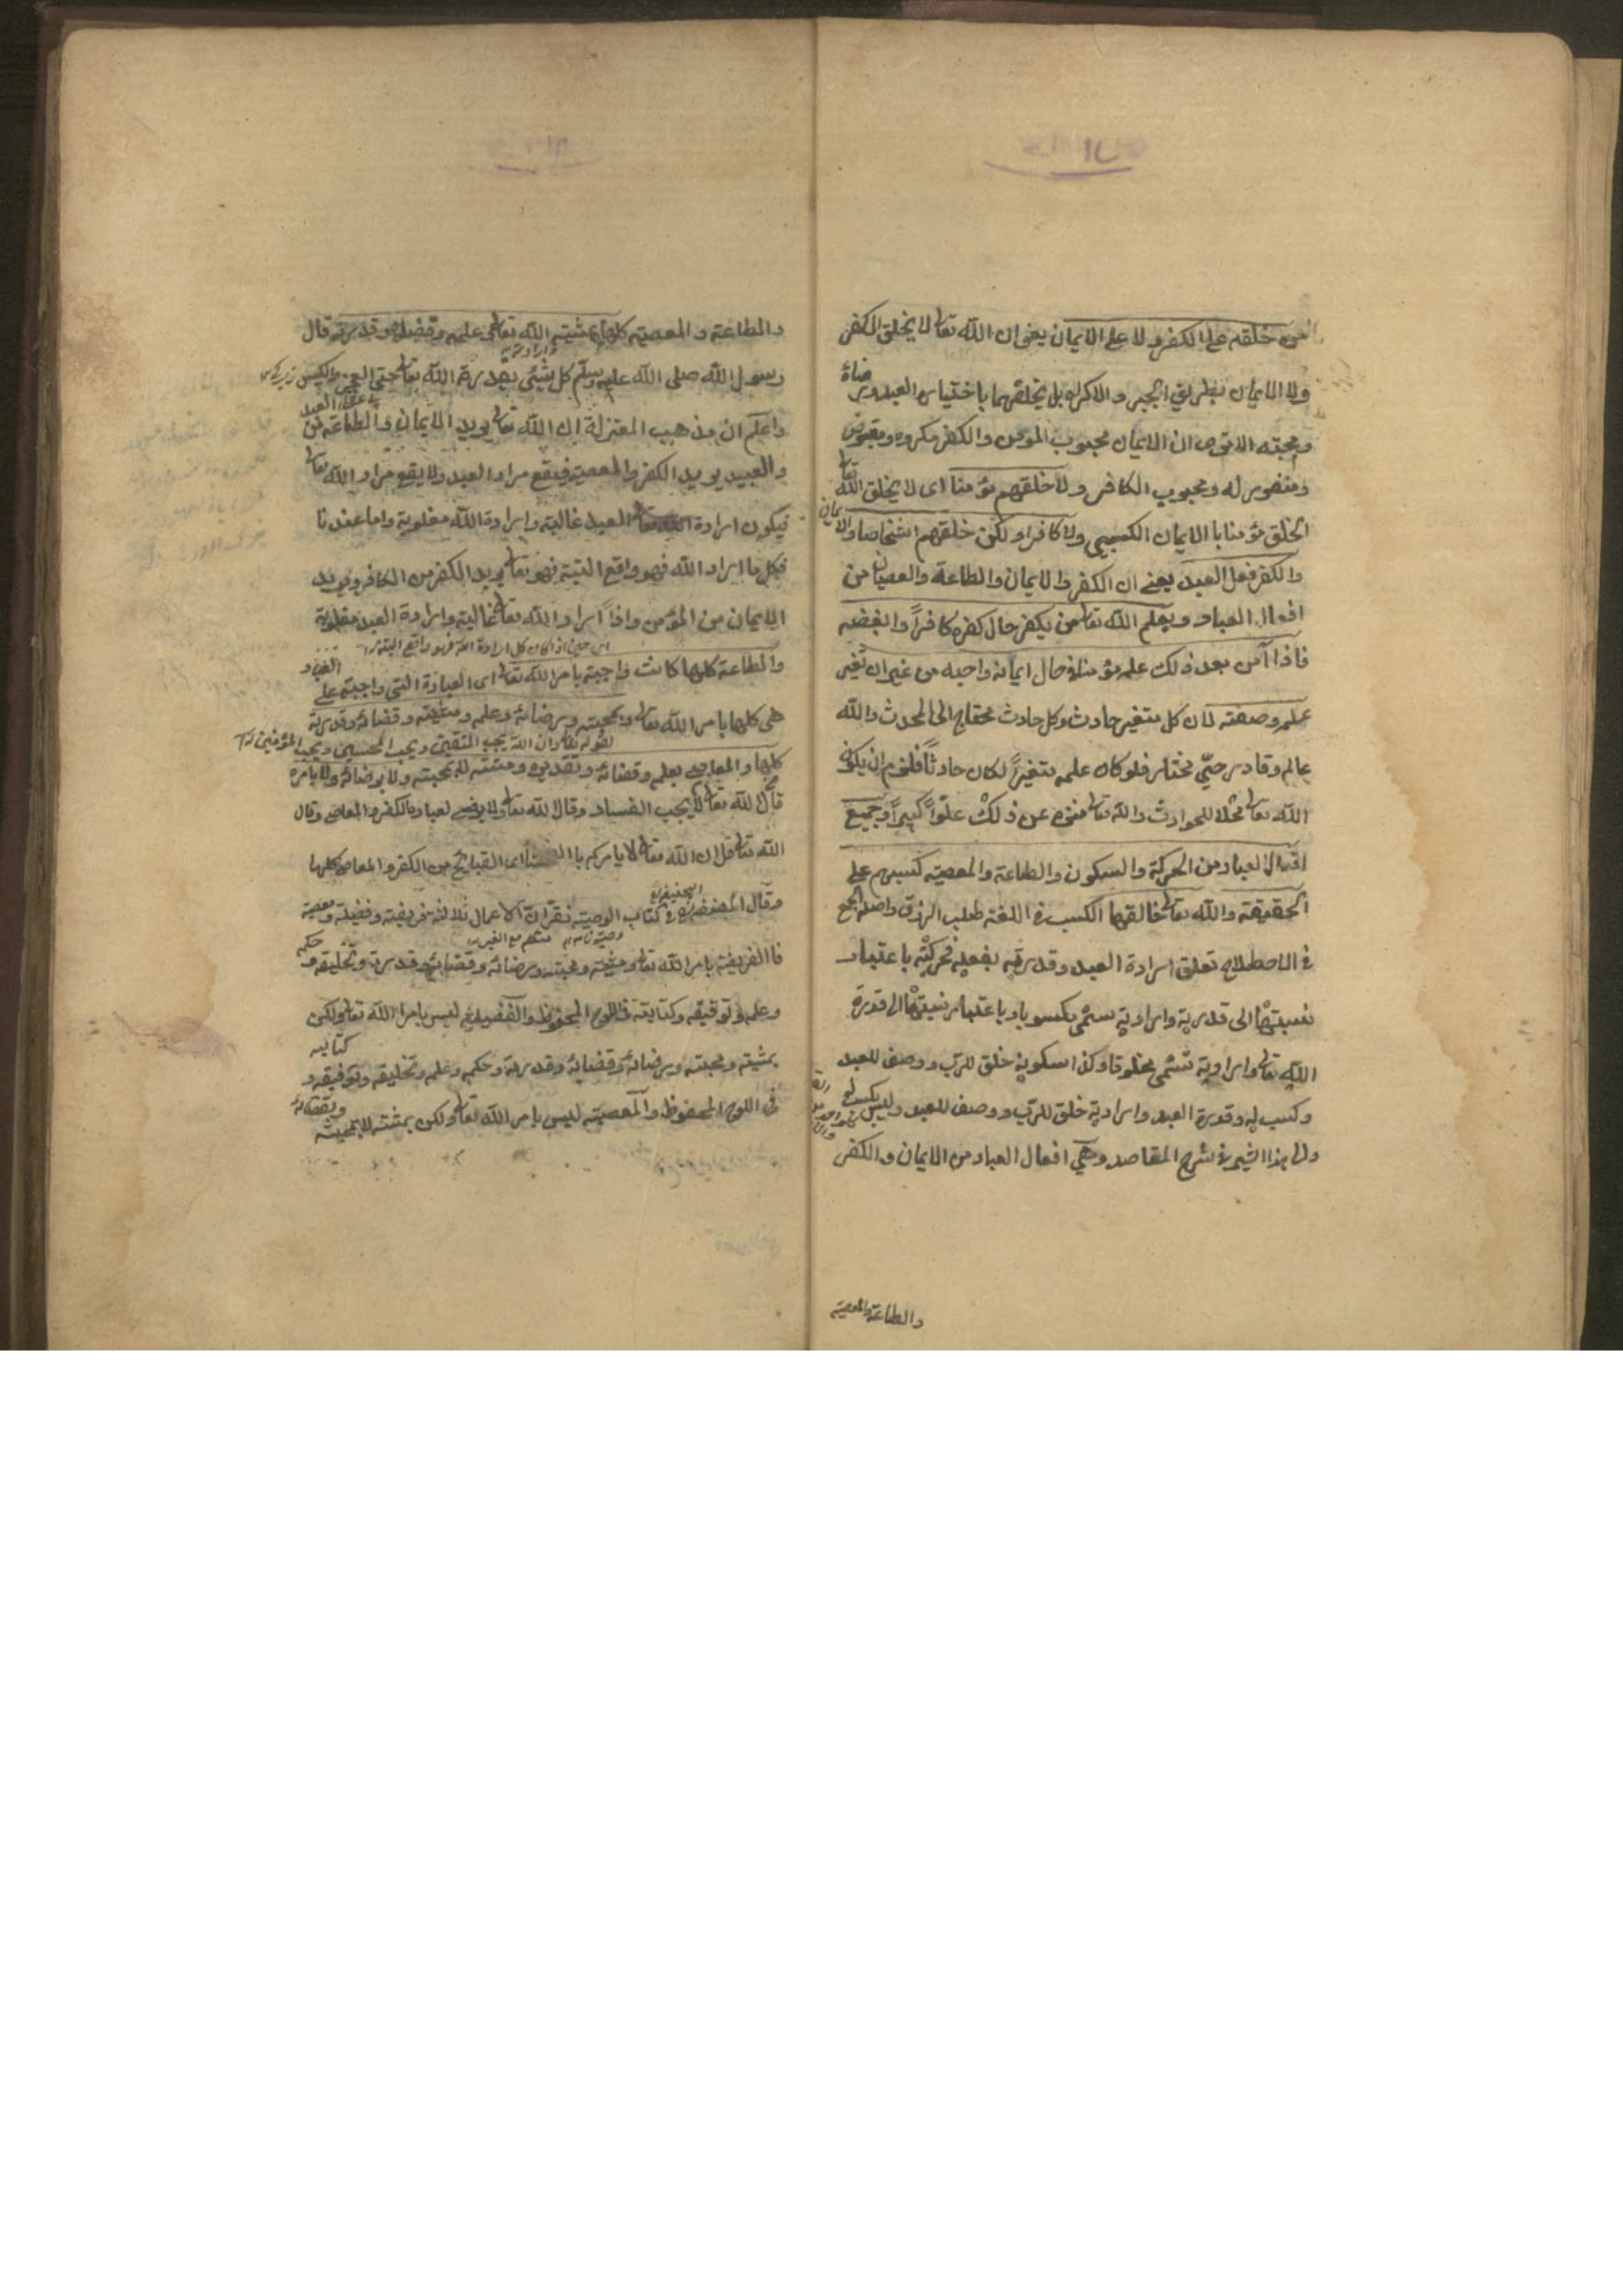 من خلقه على الكفر ولا على الايمان يعنى ان الله تعالى لا يخلق الكفر
ولا الايمان بطريق الجبر والاكراه بل يخلقهما باختيار العبد ورضاۀ
ومحبته الا ترى ان الايمان محبوب المومن والكفر مكروه ومبغوض
ومنفور له ومحبوب الكافر ولا خلقهم مؤمنا اى لا يخلق الله تعالى
الخلق مؤمنا با الايمان الكسبي ولا كافرا ولكن خلقهم اشخاصا والايمان
والكفر فعل العبد يعنے ان الكفر والايمان والطاعة والعصيان من
افعال العباد ويعلم الله تعالى من يكفر حال كفره كافراً وابغضه
فاذا آمن بعد ذلك علمه مؤمنا فى حال ايمانه واحبه من غير ان تغير
علمه وصفته لان كل متغير حادث وكل حادث محتاج الى المحدث والله
عالم وقادر حيّ مختار فلو كان علمه متغيراً لكان حادثاً فلزم ان يكون
الله تعالى محلا للحوادث والله تعالى منزه عن ذلك علوّاً كبيراً وجميع
افعال العباد من الحركة والسكون والطاعة والمعصية كسبهم على
الحقيقة والله تعالى خالقها الكسب فى اللغة طلب الرزق واصله الجمع
فى الاصطلاح تعلق ارادة العبد وقدرته بفعله فحركته باعتبار
نسبتها الى قدرته وارادته تسمى مكسوبا وباعتبار نسبتها الى قدرة
الله تعالى وارادته تسمى مخلوقا وكذا سكونه خلق للرب ووصف للعبد
وكسب له وقدرة العبد وارادته خلق للرب ووصف للعبد وليس بكسب له
شرح المقاصد وهى افعال العباد من الايمان والكفر
والطاعة والمعصية
والطاعة والمعصية كلها بمشية الله تعالى وعلمه وقضاۀ وقدرته قال
وارادته
رسول الله صلى الله عليه وسلم كل شيئى بقدرة الله تعالى حتى العجز والكيس
واعلم ان مذهب المعتزلة ان الله تعالى يريد الايمان والطاعة من العبد
والعبيد يريد الكفر والمعصية فيقع مراد العبد ولا يقع مراد الله تعالى
فيكون ارادة العبد غالبة وارادة الله مغلوبة واما عندنا
فكل ما اراد الله فهو واقع البتة فهو تعالى يريد الكفر من الكافر ويريد
الايمان من المؤمن واذاً اراد الله تعالى غالبة وارادة العبد مغلوبة
والطاعة كلها كانت واجبة بامر الله تعالى اى العبادة التى واجبة على العباد
هى كلها بامر الله تعالى وبمحبته ورضائه وعلمه ومشيته وقضائه وقدرته
لقوله تعالى ان الله يحب المتقين ويحب المحسنين ويحب المؤمنين
كلها والمعاصى بعلمه وقضائه وتقديره ومشيته لا بمحبته ولا برضائه ولا بامره
قال الله تعالى لا يحب الفساد وقال الله تعالى ولا يرضى لعباده الكفر والمعاصى وقال
الله تعالى قل ان الله تعالى لا يامركم باالفحشاء اى القبائح من الكفر والمعاصى كلها
وقال المصنف فى كتاب الوصية نقر ان الاعمال ثلاثة فريضة وفضيلة ومعصية
فا الفريضة بامر الله تعالى ومشيته ومحبته ورضائه وقضائه وقدرته وتخليقه وحكمه
وعلمه وتوفيقه وكتابته فى اللوح المحفوظ والفضيلة ليس بامر الله تعالى ولكن
بمشيته ومحبته ورضائه وقضائه وقدرته وحكمه وعلمه وتخليقه وتوفيقه وكتابه
فى اللوح المحفوظ والمعصية ليس بامر الله تعالى ولكن بمشيته لا بمحبته